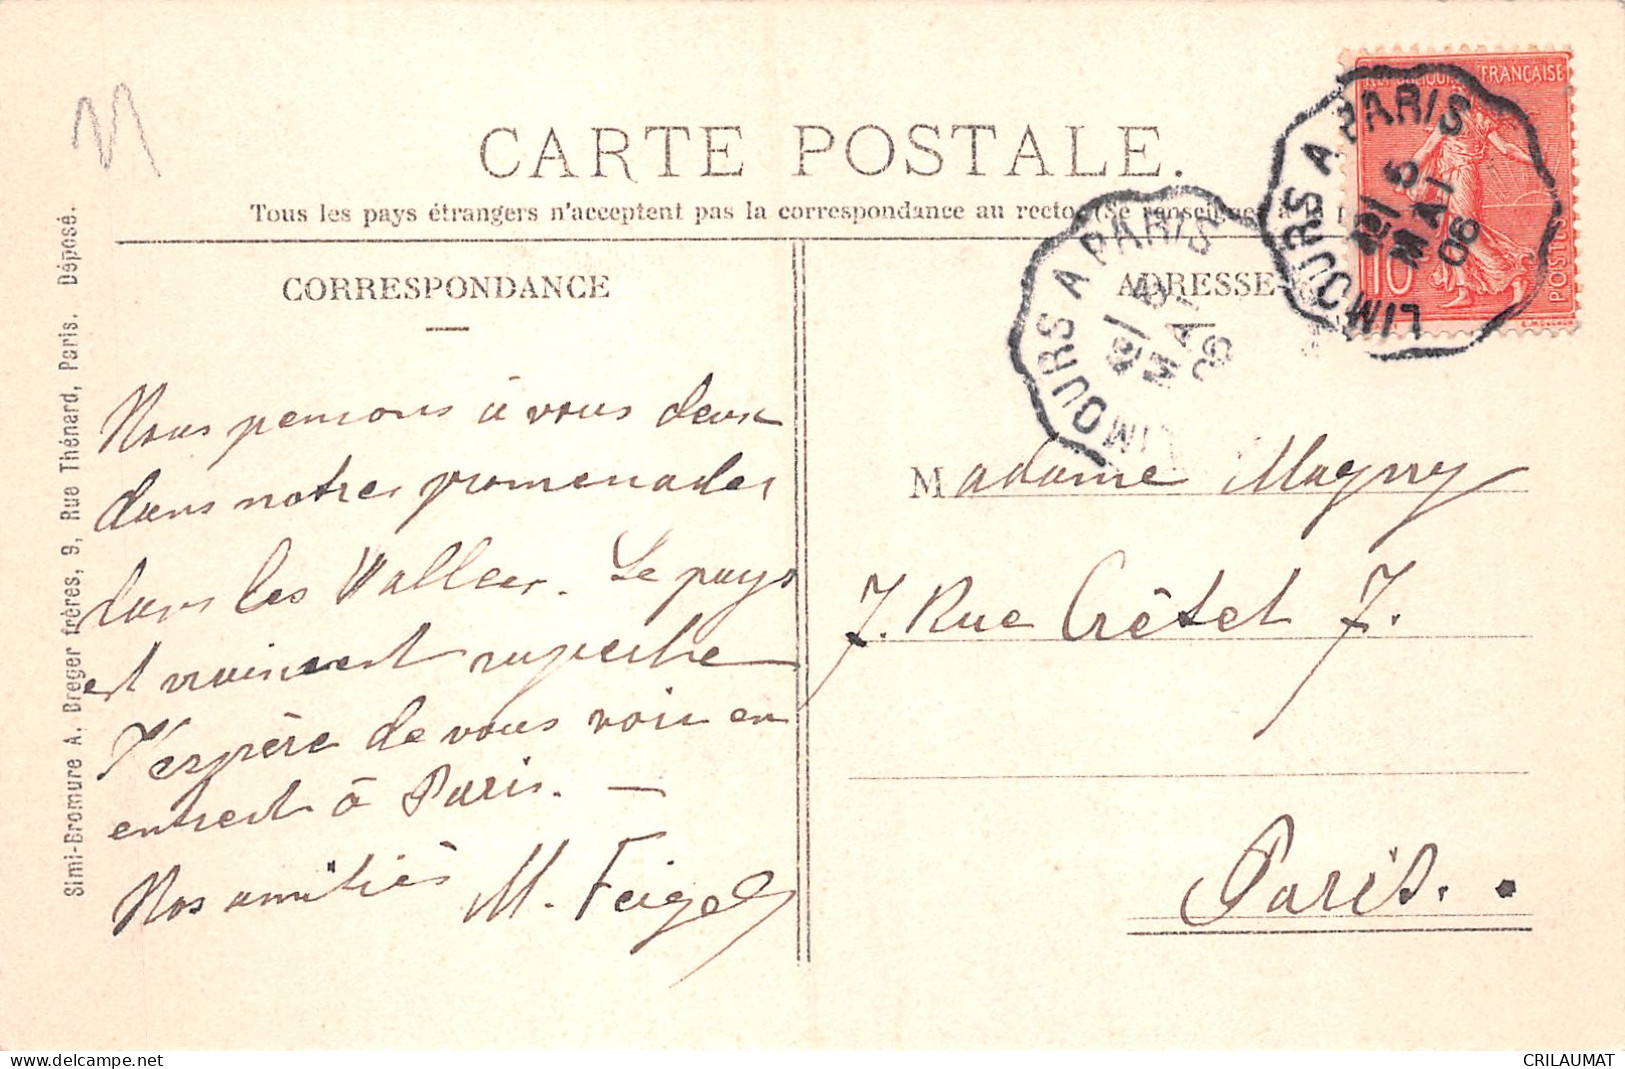 CARTE POSTALE.
Tous les pays étrangers n'acceptent pas la correspondance au recto (Se renseigner
CORRESPONDANCE
Nous pensons à vous deux
dans notre promenade
dans les Vallées. Le pays
est vraiment superbe
J'espère de vous voir en
entrent à Paris. —
Nos amitiés
M. Feigel
ADRESSE
Madame Magny
7. Rue Crétet 7.
Paris.
REPUBLIQUE FRANÇAISE
POSTES
10
LIMOURS A PARIS
5
MAI
06
LIMOURS A PARIS
5
MAI
06
Simi-Bromure A. Breger frères, 9, Rue Thénard, Paris. Déposé.
www.delcampe.net
CRILAUMAT